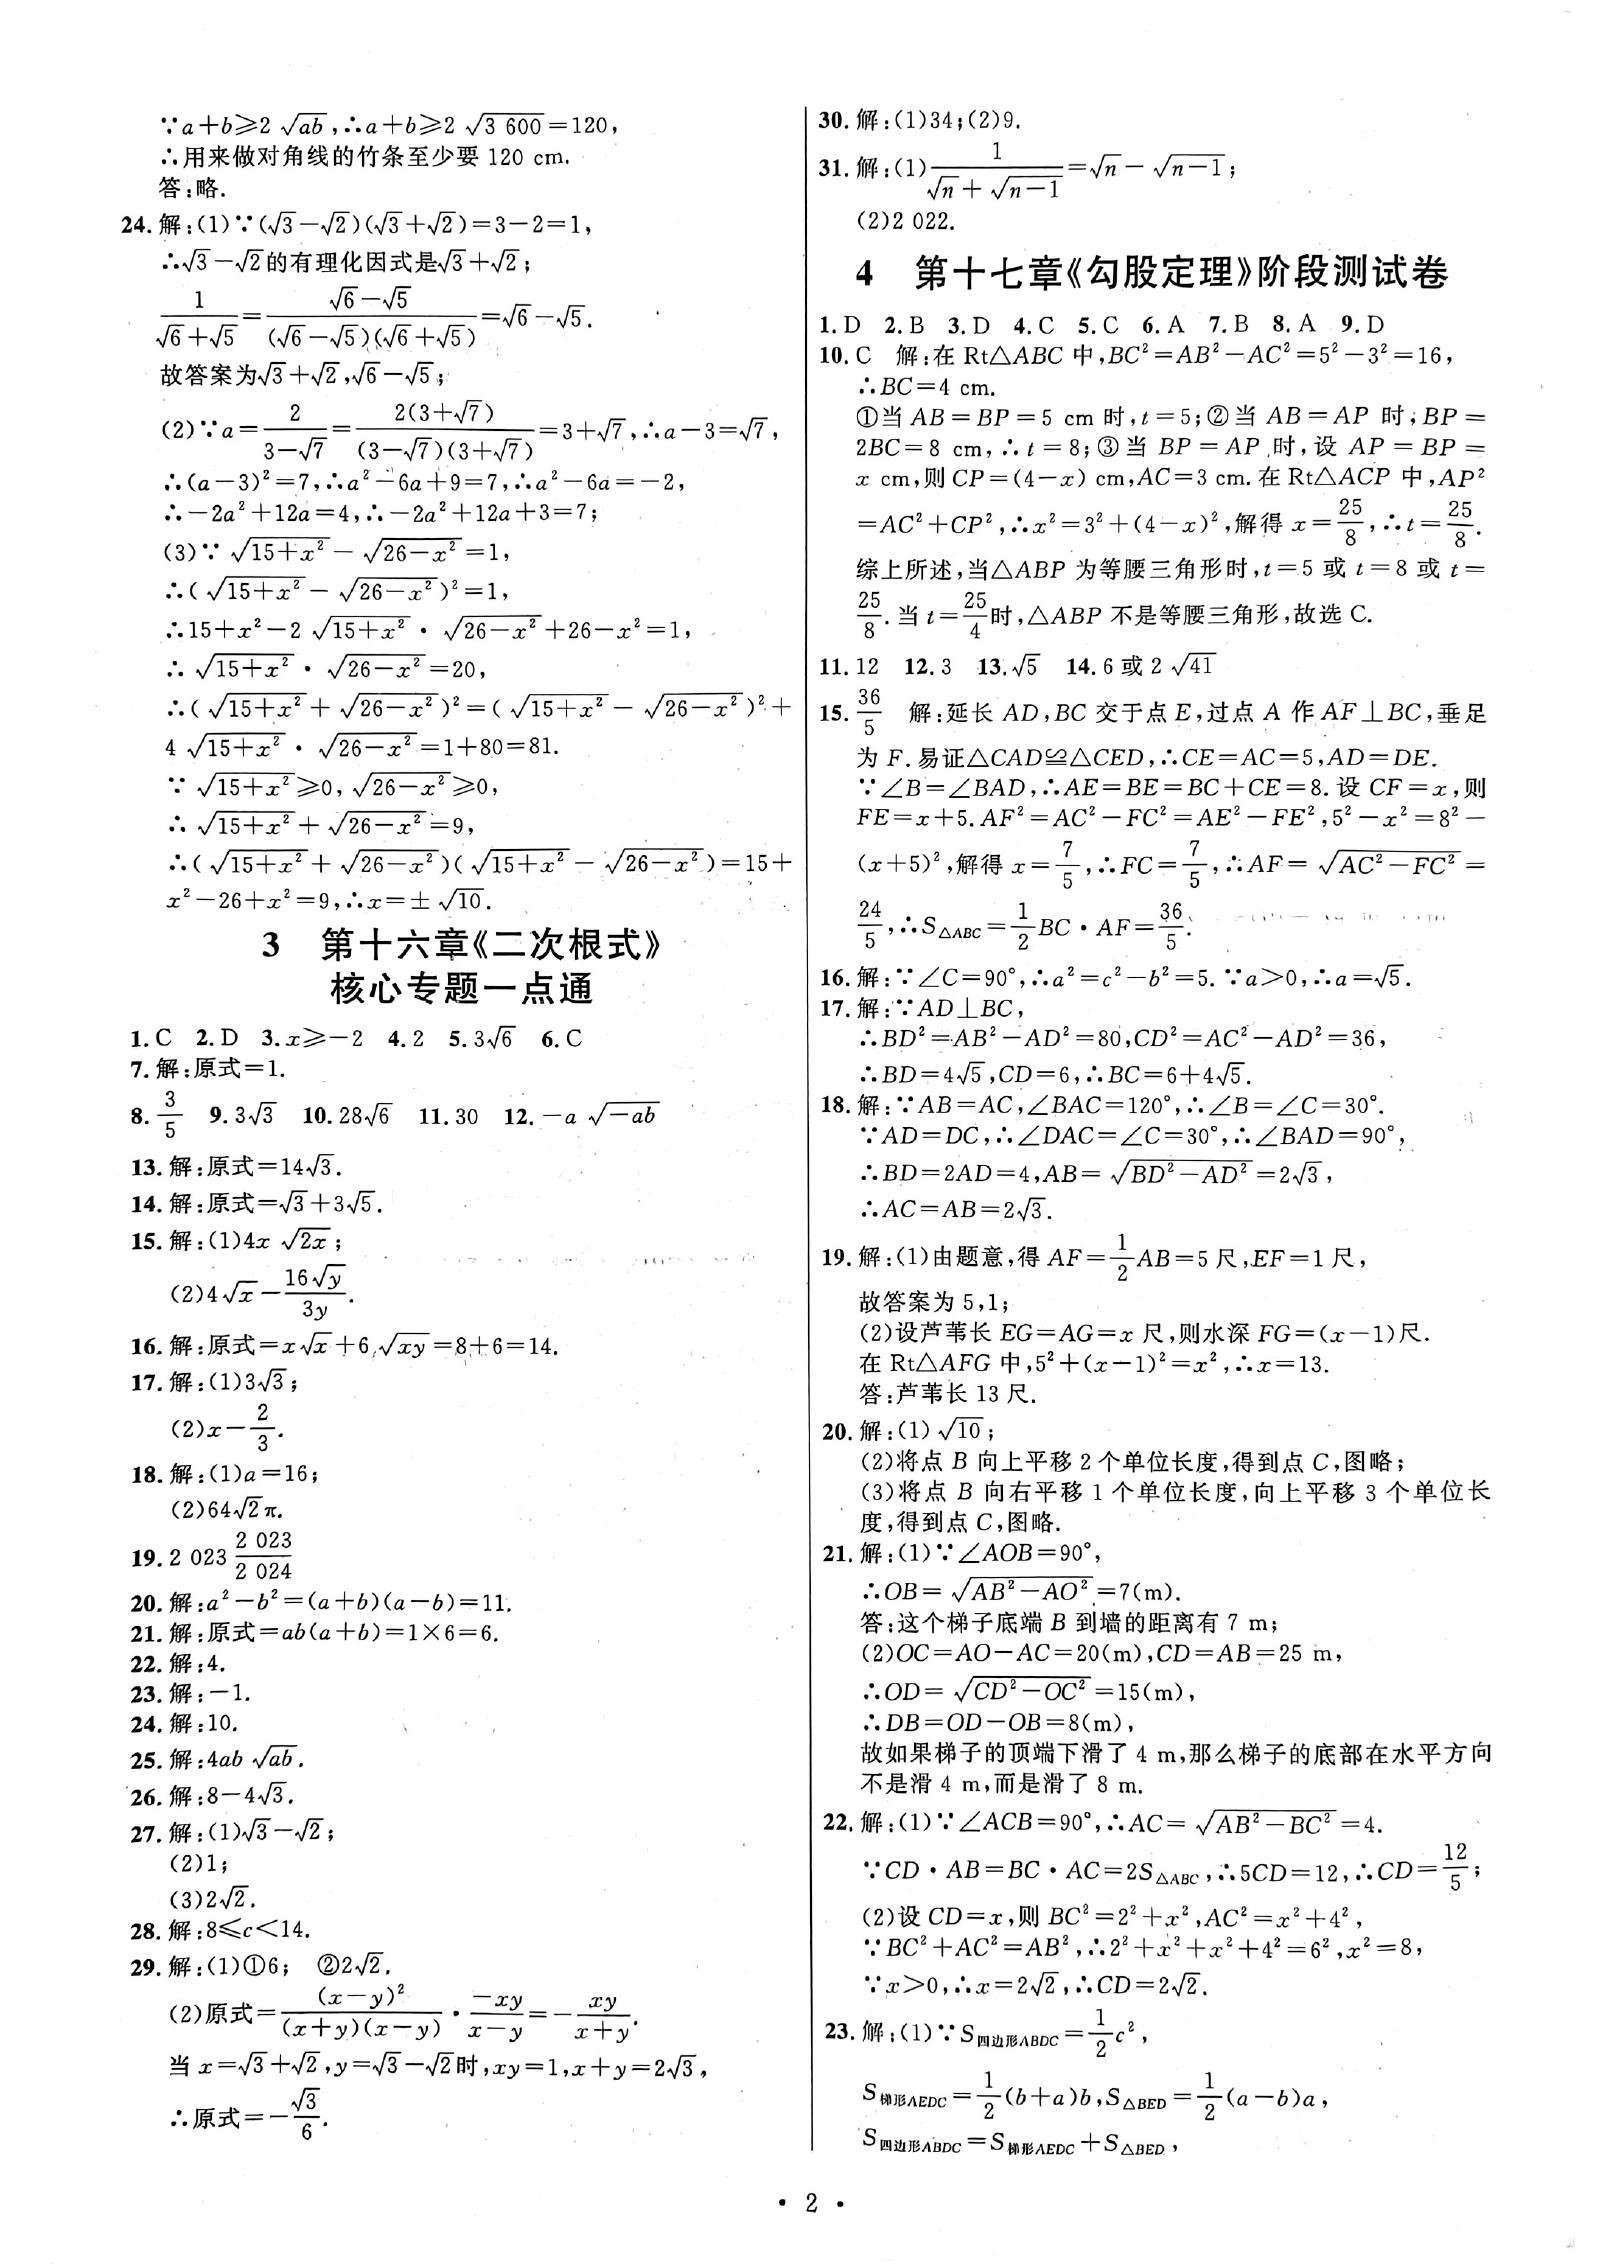 ∵a+b≥2√ab,∴a+b≥2√3 600=120,
∴用来做对角线的竹条至少要 120 cm.
答:略.
24.解:(1)∵(√3-√2)(√3+√2)=3-2=1,
∴√3-√2的有理化因式是√3+√2;
1/(√6+√5)=(√6-√5)/((√6-√5)(√6+√5))=√6-√5.
故答案为√3+√2,√6-√5;
(2)∵a=2/(3-√7)=2(3+√7)/((3-√7)(3+√7))=3+√7,∴a-3=√7,
∴(a-3)²=7,∴a²-6a+9=7,∴a²-6a=-2,
∴-2a²+12a=4,∴-2a²+12a+3=7;
(3)∵√(15+x²)-√(26-x²)=1,
∴(√(15+x²)-√(26-x²))²=1,
∴15+x²-2√(15+x²)·√(26-x²)+26-x²=1,
∴√(15+x²)·√(26-x²)=20,
∴(√(15+x²)+√(26-x²))²=(√(15+x²)-√(26-x²))²+
4√(15+x²)·√(26-x²)=1+80=81.
∵√(15+x²)≥0,√(26-x²)≥0,
∴√(15+x²)+√(26-x²)=9,
∴(√(15+x²)+√(26-x²))(√(15+x²)-√(26-x²))=15+
x²-26+x²=9,∴x=±√10.
3 第十六章《二次根式》
核心专题一点通
1.C 2.D 3.x≥-2 4.2 5.3√6 6.C
7.解:原式=1.
8.3/5 9.3√3 10.28√6 11.30 12.-a√(-ab)
13.解:原式=14√3.
14.解:原式=√3+3√5.
15.解:(1)4x√(2x);
(2)4√x-16√y/3y.
16.解:原式=x√x+6√(xy)=8+6=14.
17.解:(1)3√3;
(2)x-2/3.
18.解:(1)a=16;
(2)64√2π.
19.2 023 2 023/2 024
20.解:a²-b²=(a+b)(a-b)=11.
21.解:原式=ab(a+b)=1×6=6.
22.解:4.
23.解:-1.
24.解:10.
25.解:4ab√(ab).
26.解:8-4√3.
27.解:(1)√3-√2;
(2)1;
(3)2√2.
28.解:8≤c<14.
29.解:(1)①6; ②2√2.
(2)原式=(x-y)²/((x+y)(x-y))·(-xy)/(x-y)=-xy/(x+y).
当 x=√3+√2,y=√3-√2时,xy=1,x+y=2√3,
∴原式=-√3/6.
30.解:(1)34;(2)9.
31.解:(1)1/(√n+√(n-1))=√n-√(n-1);
(2)2 022.
4 第十七章《勾股定理》阶段测试卷
1.D 2.B 3.D 4.C 5.C 6.A 7.B 8.A 9.D
10.C 解:在 Rt△ABC 中,BC²=AB²-AC²=5²-3²=16,
∴BC=4 cm.
①当 AB=BP=5 cm 时,t=5;②当 AB=AP 时,BP=
2BC=8 cm,∴t=8;③当 BP=AP 时,设 AP=BP=
x cm,则 CP=(4-x) cm,AC=3 cm.在 Rt△ACP 中,AP²
=AC²+CP²,∴x²=3²+(4-x)²,解得 x=25/8,∴t=25/8.
综上所述,当△ABP 为等腰三角形时,t=5 或 t=8 或 t=
25/8.当 t=25/4时,△ABP 不是等腰三角形,故选 C.
11.12 12.3 13.√5 14.6 或 2√41
15.36/5 解:延长 AD,BC 交于点 E,过点 A 作 AF⊥BC,垂足
为 F.易证△CAD≌△CED,∴CE=AC=5,AD=DE.
∵∠B=∠BAD,∴AE=BE=BC+CE=8.设 CF=x,则
FE=x+5.AF²=AC²-FC²=AE²-FE²,5²-x²=8²-
(x+5)²,解得 x=7/5,∴FC=7/5,∴AF=√(AC²-FC²)=
24/5,∴S△ABC=1/2BC·AF=36/5.
16.解:∵∠C=90°,∴a²=c²-b²=5.∵a>0,∴a=√5.
17.解:∵AD⊥BC,
∴BD²=AB²-AD²=80,CD²=AC²-AD²=36,
∴BD=4√5,CD=6,∴BC=6+4√5.
18.解:∵AB=AC,∠BAC=120°,∴∠B=∠C=30°.
∵AD=DC,∴∠DAC=∠C=30°,∴∠BAD=90°,
∴BD=2AD=4,AB=√(BD²-AD²)=2√3,
∴AC=AB=2√3.
19.解:(1)由题意,得 AF=1/2AB=5 尺,EF=1 尺,
故答案为 5,1;
(2)设芦苇长 EG=AG=x 尺,则水深 FG=(x-1)尺.
在 Rt△AFG 中,5²+(x-1)²=x²,∴x=13.
答:芦苇长 13 尺.
20.解:(1)√10;
(2)将点 B 向上平移 2 个单位长度,得到点 C,图略;
(3)将点 B 向右平移 1 个单位长度,向上平移 3 个单位长
度,得到点 C,图略.
21.解:(1)∵∠AOB=90°,
∴OB=√(AB²-AO²)=7(m).
答:这个梯子底端 B 到墙的距离有 7 m;
(2)OC=AO-AC=20(m),CD=AB=25 m,
∴OD=√(CD²-OC²)=15(m),
∴DB=OD-OB=8(m),
故如果梯子的顶端下滑了 4 m,那么梯子的底部在水平方向
不是滑 4 m,而是滑了 8 m.
22.解:(1)∵∠ACB=90°,∴AC=√(AB²-BC²)=4.
∵CD·AB=BC·AC=2S△ABC,∴5CD=12,∴CD=12/5;
(2)设 CD=x,则 BC²=2²+x²,AC²=x²+4²,
∵BC²+AC²=AB²,∴2²+x²+x²+4²=6²,x²=8,
∵x>0,∴x=2√2,∴CD=2√2.
23.解:(1)∵S四边形ABDC=1/2c²,
S梯形AEDC=1/2(b+a)b,S△BED=1/2(a-b)a,
S四边形ABDC=S梯形AEDC+S△BED,
· 2 ·